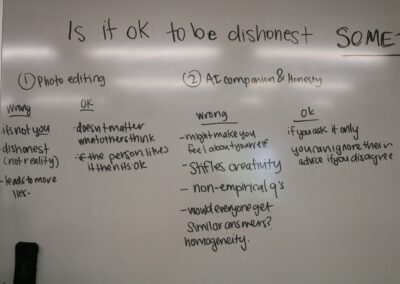 Is it OK to be dishonest SOME-
① Photo editing
wrong
- its not you
- dishonest
(not reality)
- leads to more
lies.
OK
- doesn't matter
what others think
- if the person likes
it then its ok
② AI companion & Honesty
wrong
- might make you
feel about yourself
- Stifles creativity
- non-empirical q's
- would everyone get
similar answers?
homogeneity.
ok
if you ask it only
you can ignore their
advice if you disagree